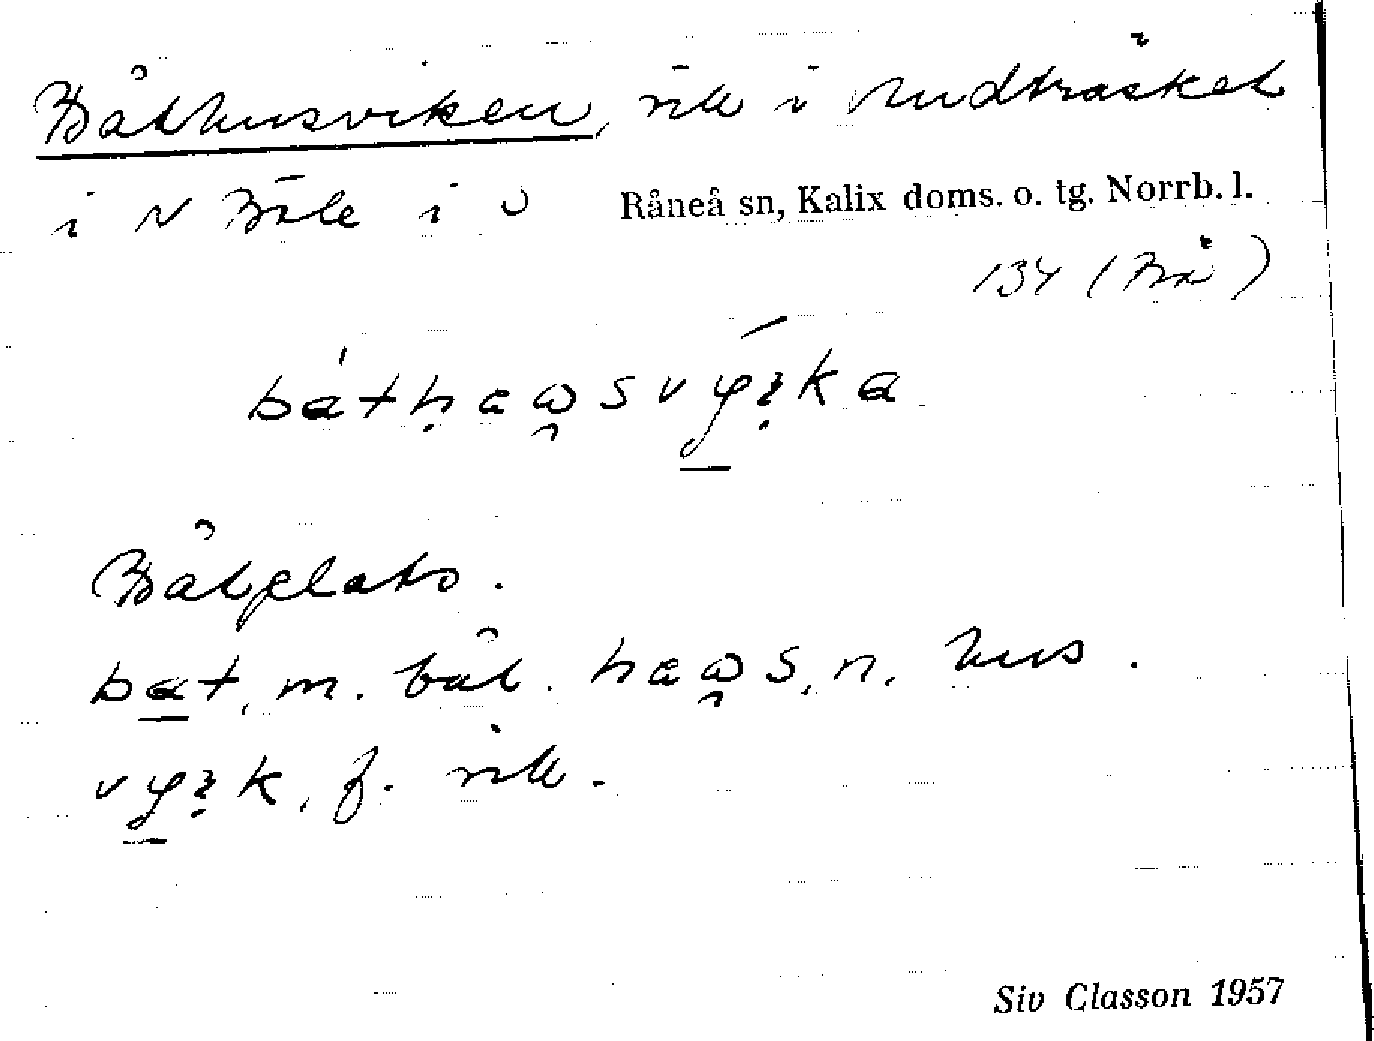 Båthusviken, vik i Rudträsket
i N Böle i
Råneå sn, Kalix doms. o. tg. Norrb. l.
134 (Bä)
Båtplats.
bat, m. båt. haωs, n. hus.
f. vik.
Siv Classon 1957